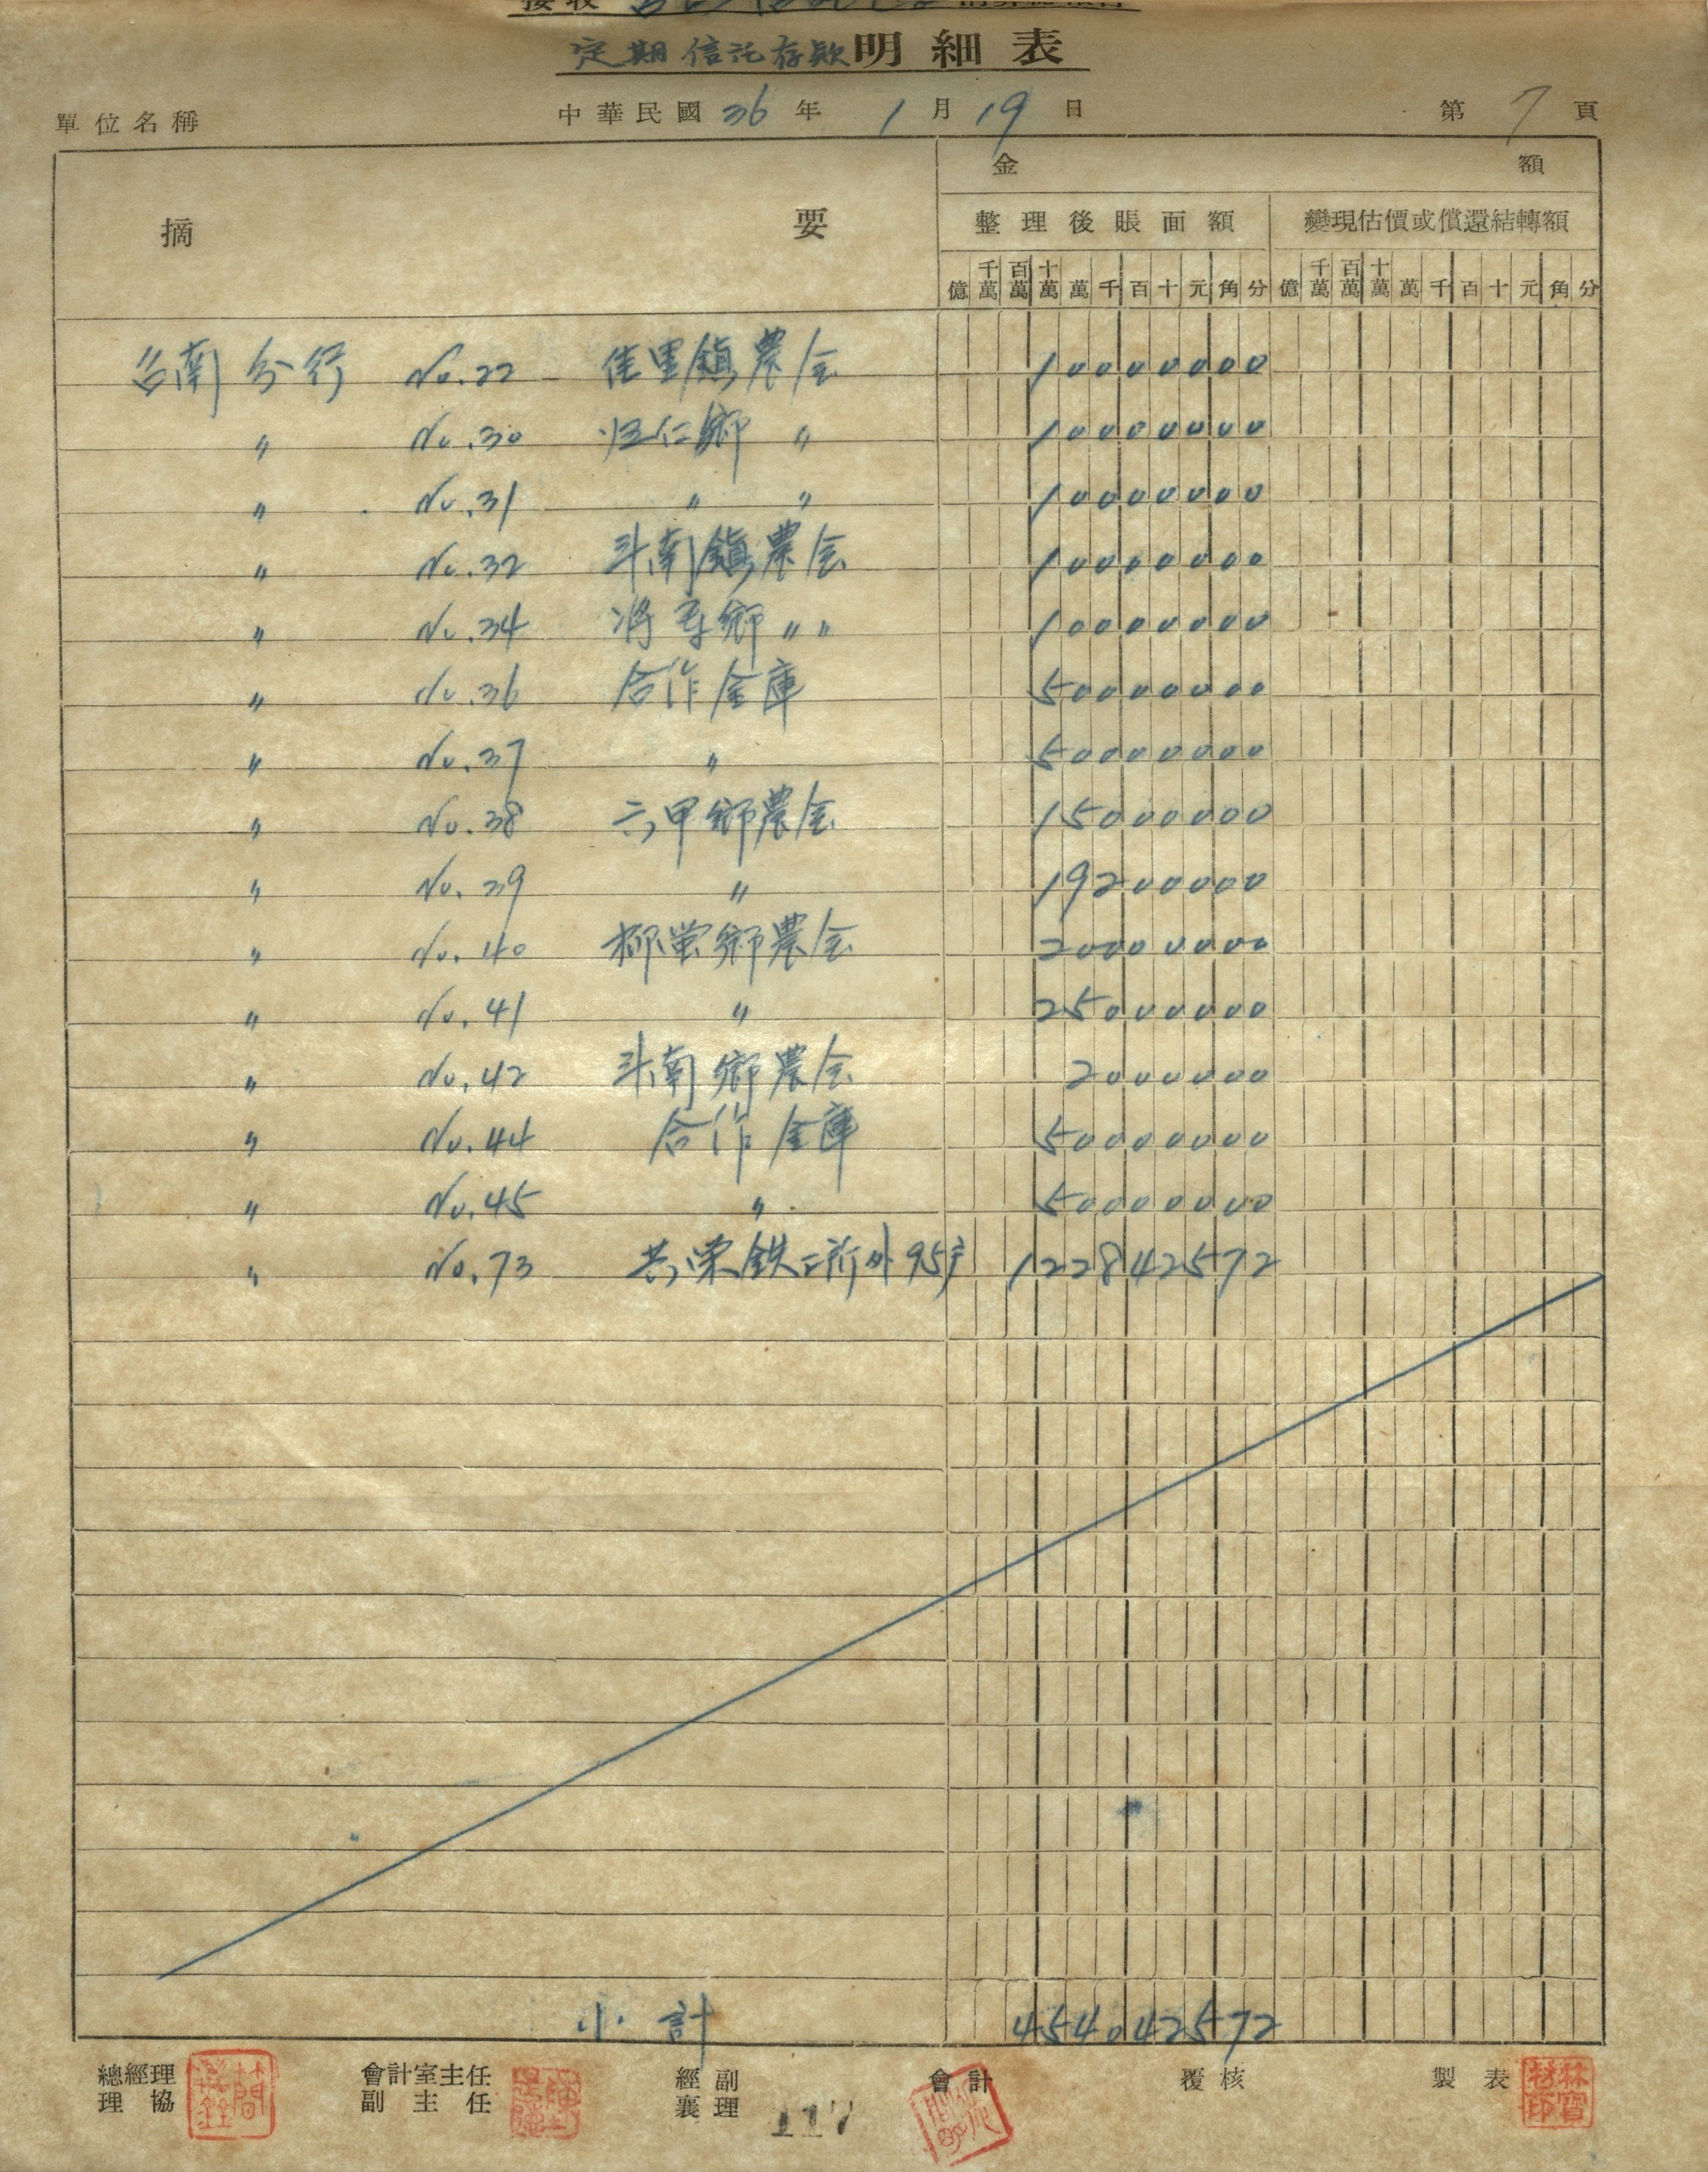 接收
定期信託存款明細表
單位名稱 中華民國36年1月19日 第7頁
摘要 金額
整理後賬面額 變現估價或償還結轉額
億 千萬 百萬 十萬 萬 千 百 十 元 角 分 億 千萬 百萬 十萬 萬 千 百 十 元 角 分
台南分行 No.22 佳里鎮農会 10000000
〃 No.30 归仁鄉〃 10000000
〃 No.31 〃 〃 10000000
〃 No.32 斗南鎮農会 10000000
〃 No.34 将军鄉〃〃 10000000
〃 No.36 合作金庫 50000000
〃 No.37 〃 50000000
〃 No.38 六甲鄉農会 15000000
〃 No.39 〃 19200000
〃 No.40 柳営鄉農会 20000000
〃 No.41 〃 25000000
〃 No.42 斗南鄉農会 2000000
〃 No.44 合作金庫 50000000
〃 No.45 〃 50000000
〃 No.73 共栄鉄工所外95户 122842572
小計 454042572
總經理 會計室主任 經副 會計 覆核 製表
協理 副主任 襄理
117
林寶材印